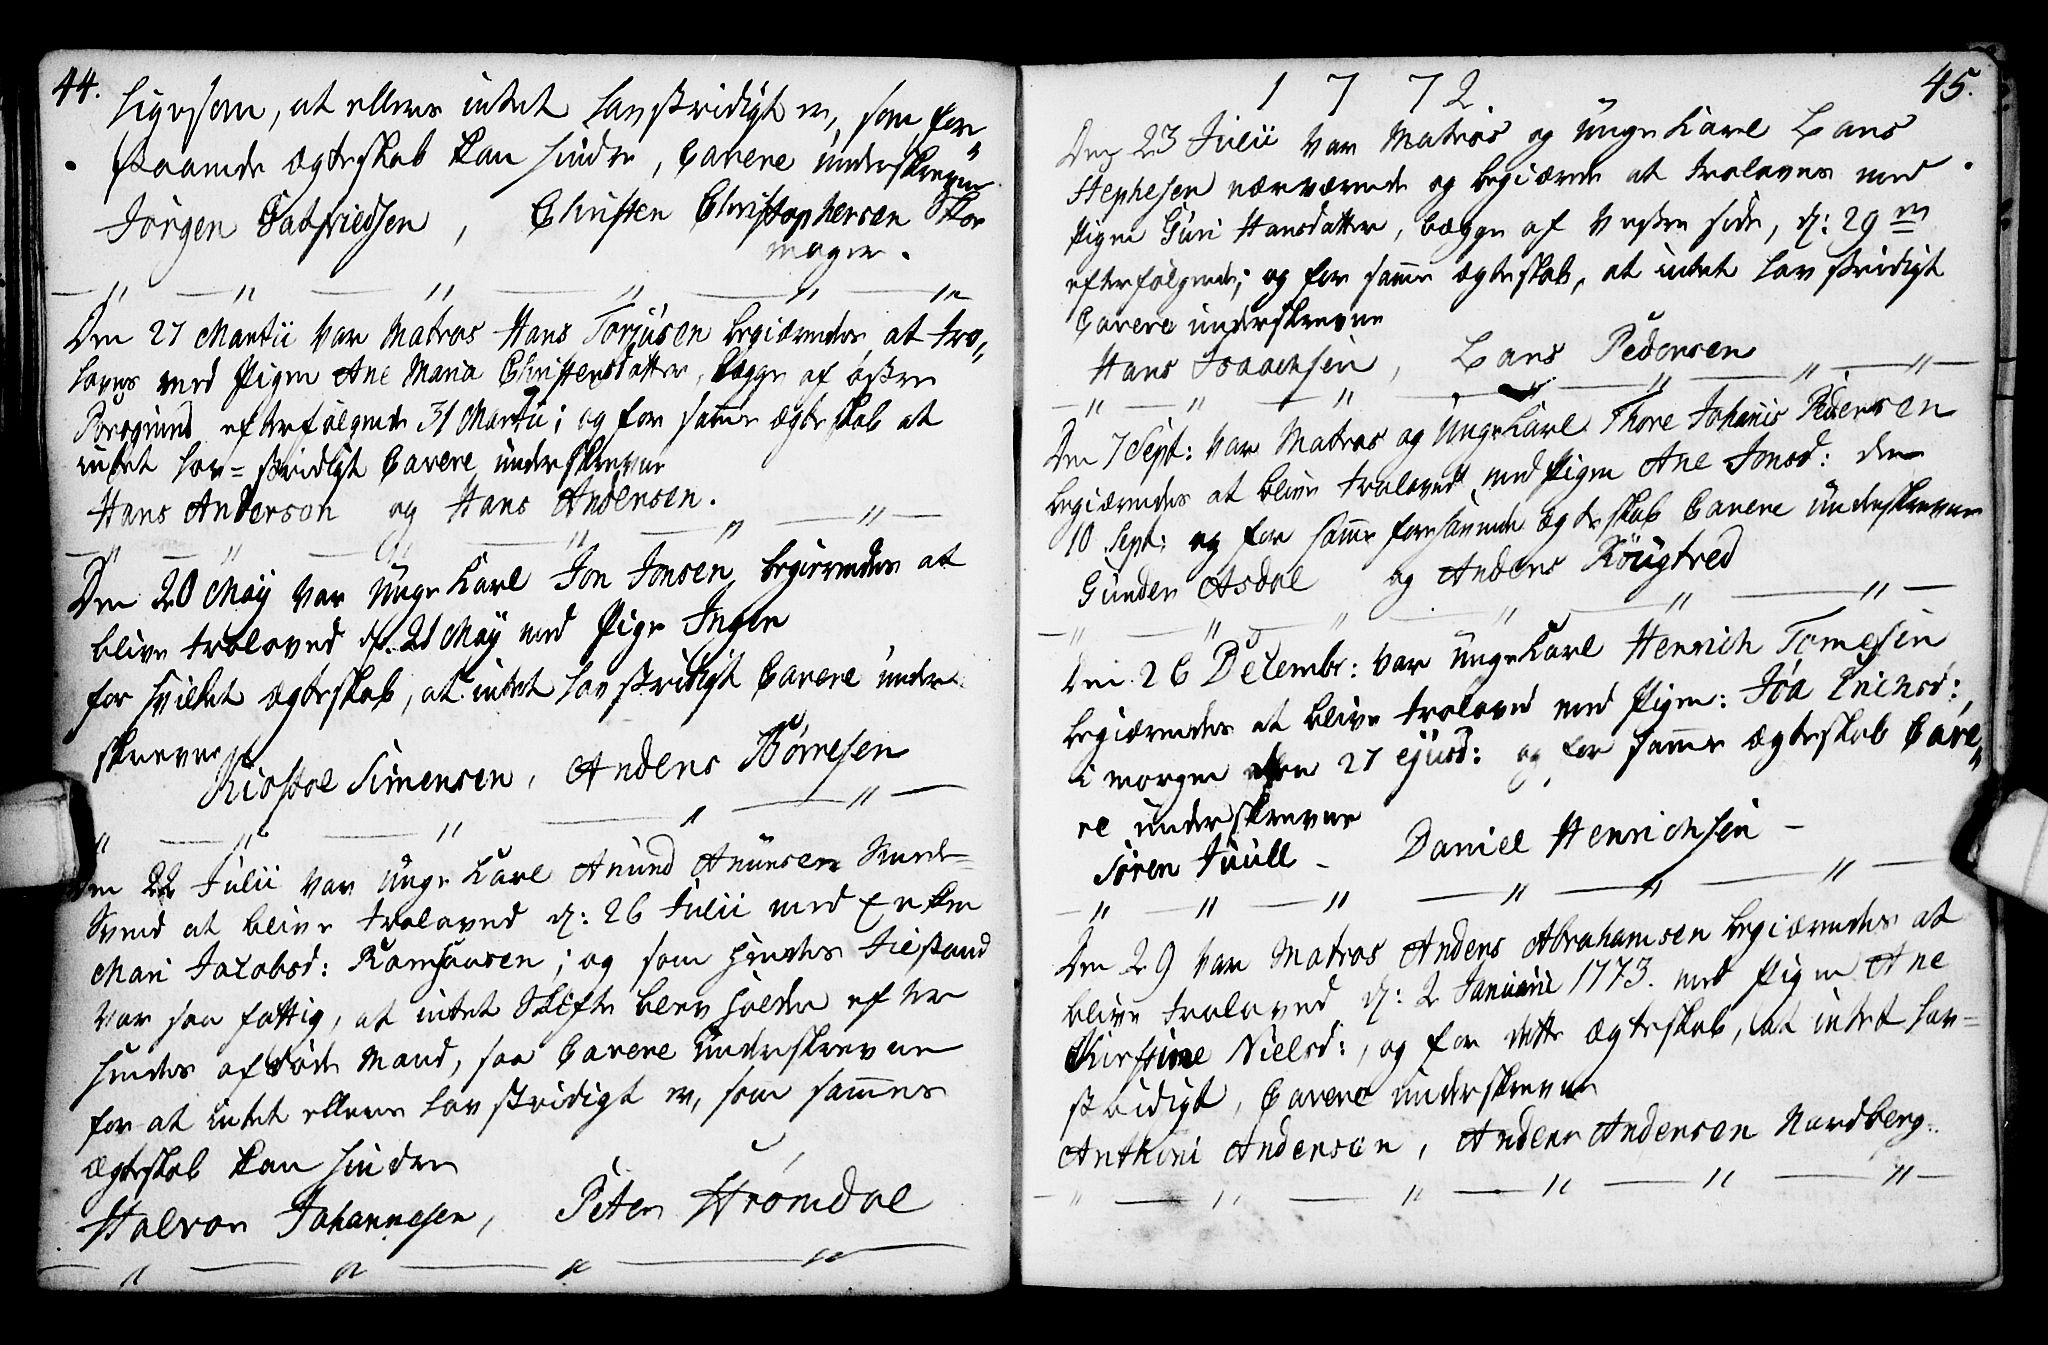 44.
ligesom, at ellers intet lovstridigt er, som for„
staaende Ægteskab kan hindre, Cavere underskrevne
Jörgen Gatfriedsen, Christen Christophersen Skoe
mager.
Den 27 Martii var Matros Hans Torjusen begiærendes at tro„
loves med Pigen Ane Maria Christensdatter, begge af östre
Porsgrund efterfølgende 31 Martii; og for samme Ægteskab at
intet lov=stridigt Cavere underskrevne
Hans Anderson og Hans Andersen.
Den 20 Maÿ var Unge Karl Jon Jonsen begierendes at
blive trolovet d. 21 Maÿ med Pige Inger
for hvilket Ægteskab, at intet lovstridigt Cavere under
skrevne
Kiostol Simensen, Anders Börresen
Den 22 Julii var Unge Karl Anund Anunsen Smede=
Svend at blive trolovet d: 26 Julii med Enken
Mari Jacobsd: Ramhausen; og som hendes Tilstand
var saa fattig, at intet Skifte blev holden efter
hendes afdöde Mand, saa Cavere Underskrevne
for at intet ellers lovstridigt er, som sammes
Ægteskab kan hindre
Halvor Johannesen, Peter Strömdal
1772
45.
Den 23 Julii var Matros og Unge Karl Lars
Stephesen nærværende og begiærende at troloves med
Pigen Guri Hansdatter, begge af Vestre side, d: 29 de
efterfølgende; og for samme Ægteskab, at intet lovstridigt
Cavere underskrevne
Hans Isaachsen, Lars Pedersen
Den 7 Sept: var Matros og Unge Karl Thore Johanis Pedersen
begiærendes at blive trolovet med Pigen Ane Jonsd: den
10 Sept: og for samme forehavende Ægteskab Cavere Underskrevne
Gunder Asdal og Anders Röugtved
Den 26 Decembr: var Unge Karl Henrich Tomesen
begiærendes at blive trolovet med Pigen: Joa Erichsd:,
i morgen den 27 ejusd: og for samme Ægteskab Cave„
re underskrevne
Sören Juull - Daniel Henrichsen -
Den 29 var Matros Anders Abrahamsen begiærendes at
blive trolovet d: 2 Januarii 1773. med Pigen Ane
Kirstine Nielsd:, og for dette Ægteskab, at intet lov=
stridigt, Cavere underskrevne
Anthoni Andersen, Anders Andersen Nordberg.